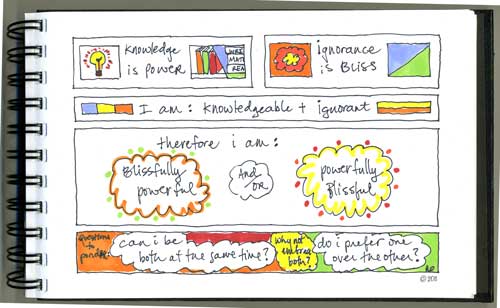 knowledge
is power
ignorance
is Bliss
I am: knowledgeable + ignorant
therefore i am:
Blissfully
powerful
And
/OR
powerfully
Blissful
Questions
to
ponder:
can i be
both at the same time?
why not
embrace
both?
do i prefer one
over the other?